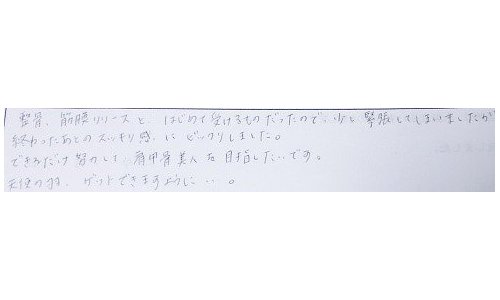 整骨、筋膜リリースと はじめて受けるものだったので、少し緊張してしまいましたが
終わったあとのスッキリ感にビックリしました。
できるだけ努力して、肩甲骨美人を目指したいです。
天使の羽、ゲットできますように…。